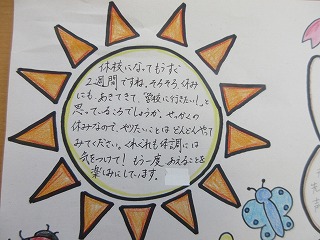 休校になってもうすぐ
2週間ですね。そろそろ、休み
にも、あきてきて、"学校に行きたい!"と
思っているころでしょうか。せっかくの
休みなので、やりたいことは どんどんやって
みてください。くれぐれも体調には
気をつけて! もう一度 あえることを
楽しみにしています。